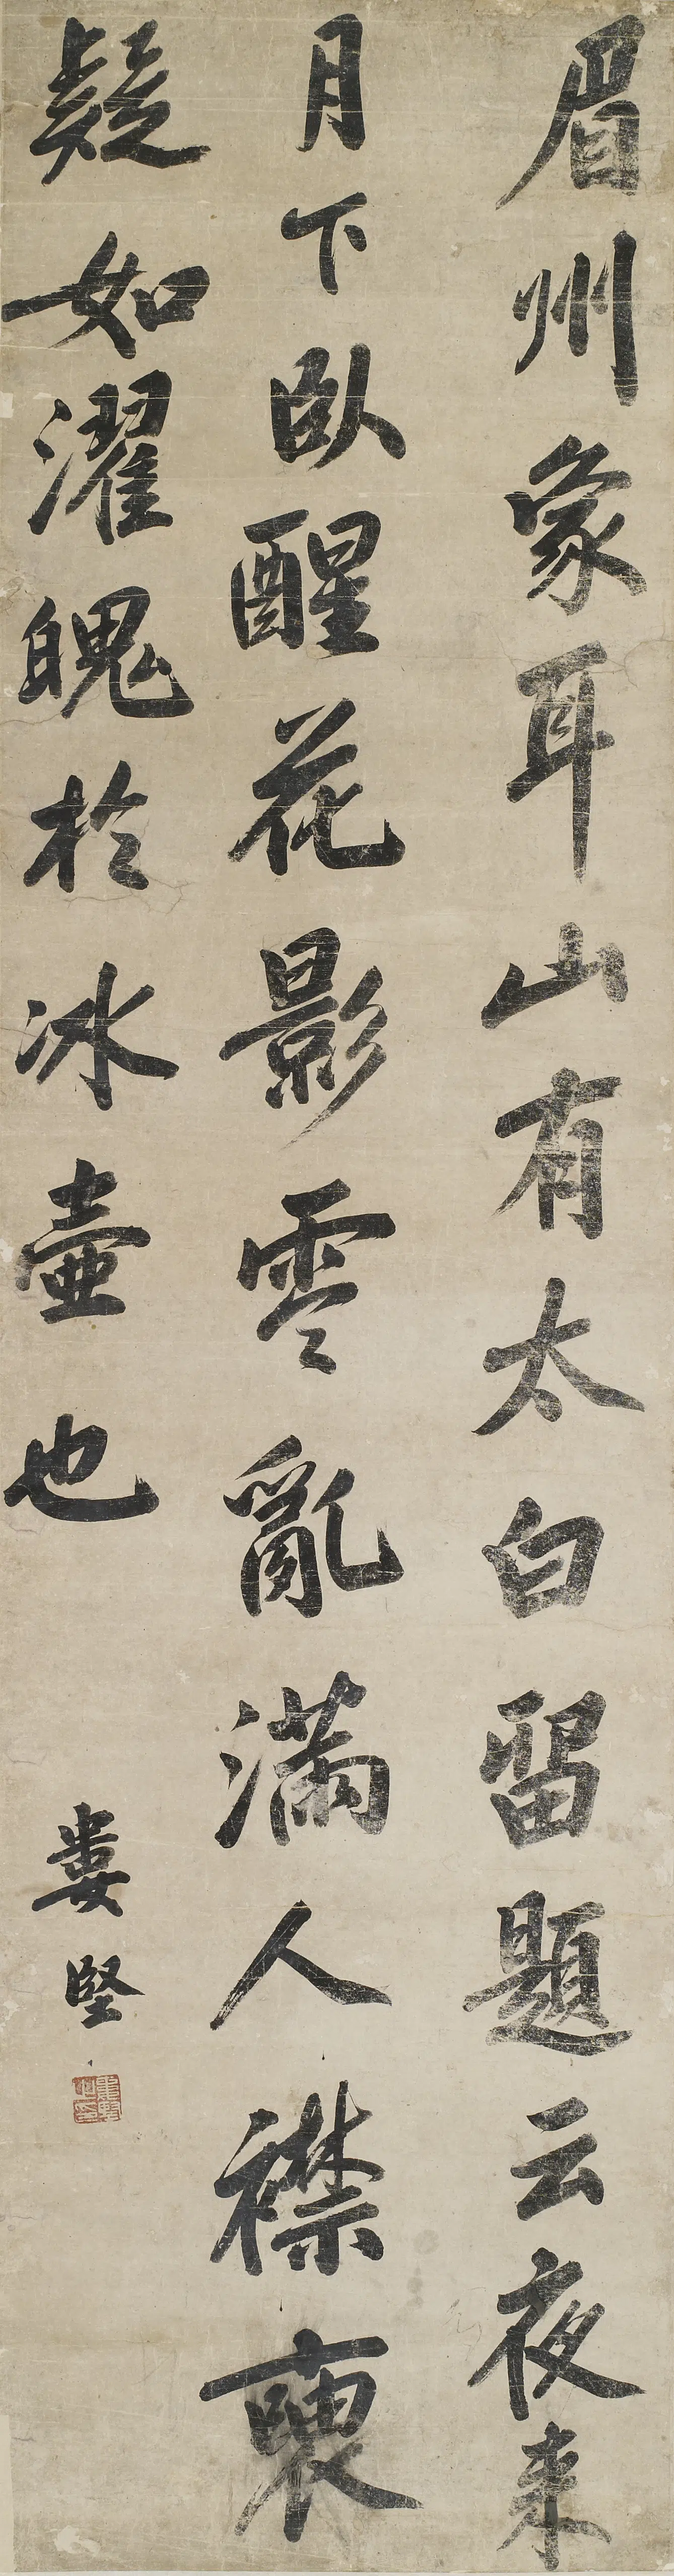 眉州象耳山有太白留題云夜来
月下臥醒花影零亂滿人襟裛
疑如濯魄於冰壺也
婁堅